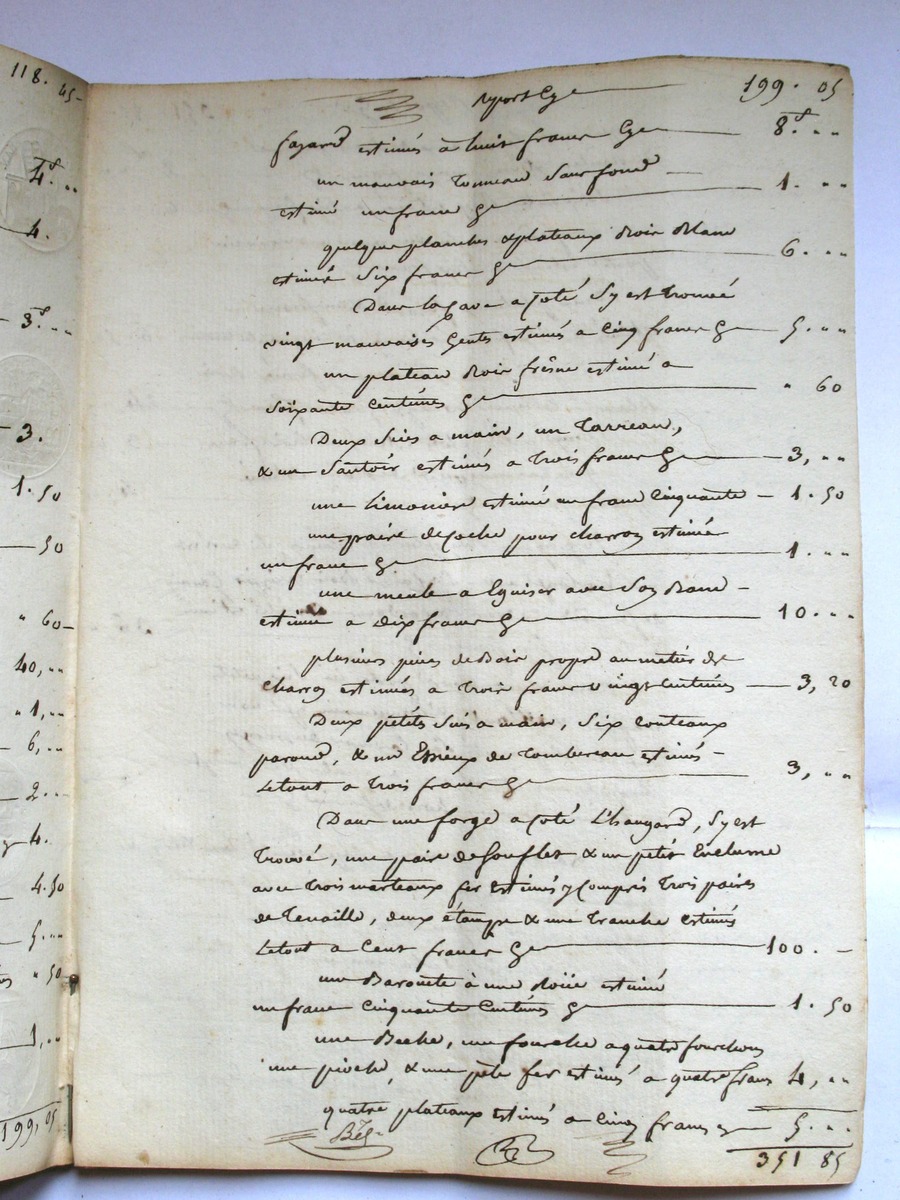 118. 45
4.f ..
4.
3.f ..
3.
1.50
50
" 60
40, ..
" 1, ..
6, ..
2 ..
4.
4.50
5. ..
" 50
1, ..
199, 05
Report Cy 199. 05
fayard estimés à huit francs Cy 8.f ..
un mauvais tonneau sans fond
estimé un franc Cy 1. ..
quelque planches & plateaux Bois Blanc
estimés six francs Cy 6. ..
Dans la cave a coté s'y est trouvé
vingt mauvaises gentes estimés a cinq francs Cy 5. ..
un plateau Bois frêne estimé a
soixante centimes Cy " 60
Deux sies a main, un tarreau,
& un sautoir estimés a trois francs Cy 3, ..
une Limonière estimé un franc cinquante 1.50
une paire de coche pour charron estimée
un franc Cy 1. ..
une meule a Eguiser avec son Banc
estimée a dix francs Cy 10. ..
plusieurs pièces de Bois propre au metier de
charron estimés a trois francs vingt centimes 3, 20
Deux petits sies a main, six couteaux
paroué, & un Essieux de tombereau estimés
le tout a trois francs Cy 3, ..
Dans une forge a coté L'hangard, s'y est
trouvé, une paire de souflet & un petit Enclume
avec trois marteaux fer Estimés y compris trois paires
de tenaille, deux étampe & une tranche estimés
le tout a Cent francs Cy 100. —
une Barouete à une Roüe estimé
un franc cinquante centimes Cy 1. 50
une Beche, une fourche a quatre fourchons
une pioche, & une pèle fer estimés a quatre francs 4, ..
quatre plateaux estimés a cinq francs Cy 5. ..
351 85